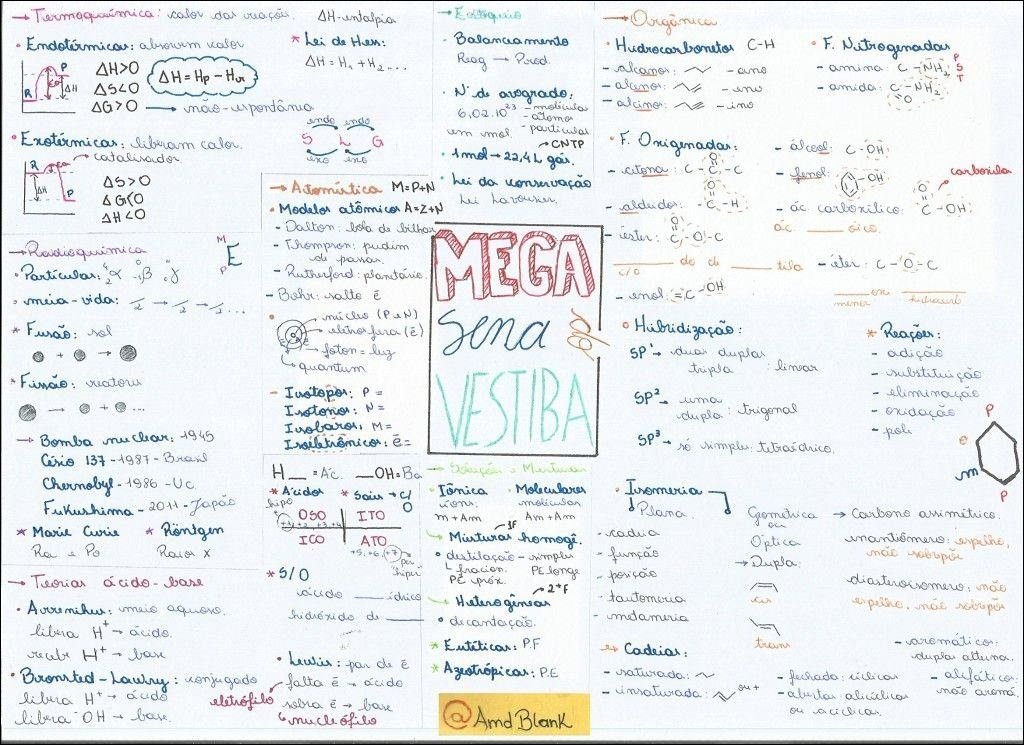 → Termoquímica: calor das reações. ΔH-entalpia
• Endotérmicas: absorvem calor
R P ΔH
ΔH>0
ΔS<0
ΔG>0 → não-espontânea
ΔH = Hp - Hr
* Lei de Hess:
ΔH = H1 + H2 ...
endo endo
S L G
exo exo
• Exotérmicas: liberam calor.
→ catalisador
R ΔH P
ΔS>0
ΔG<0
ΔH<0
→ Radioquímica
M
P E
• Partículas: α β γ
• meia-vida: /2 → /2 → /2...
* Fusão: sol
+ →
* Fissão: reatores
→ + + ...
→ Bomba nuclear: 1945
Césio 137 - 1987 - Brasil
Chernobyl - 1986 - Uc
Fukushima - 2011 - Japão
* Marie Curie * Röntgen
Ra e Po Raios X
→ Teorias ácido-base
• Arrenihus: meio aquoso.
libera H+ → ácido.
recebe H+ → base
• Bronsted-Lowry: conjugado
libera H+ → ácido
libera OH → base.
→ Atomística M=P+N
• Modelos atômicos A=Z+N
- Dalton: bola de bilhar
- Thompson: pudim
de passas.
- Rutherford: planetário.
- Bohr: salto ē
núcleo (P e N)
eletrosfera (ē)
→ foton = luz
quantum
- Isótopos: P =
Isótonos: N =
Isóbaros: M =
Isoeletrônicos: ē =
H__ = Ác. __OH = Ba
* Ácidos * Sais → C/O
hipo
OSO ITO
+1 +2 +3 +4
ICO ATO
+5, +6, +7 → per
hiper
* S/O
ácido ____ ídrico
hidróxido de ____
• Lewis: par de ē
eletrófilo falta ē → ácido
sobra ē → base
nucleófilo
→ Estequio
• Balanceamento
Reag → Prod.
• Nº de avogrado:
6,02.10²³ - moléculas
- átomos
em mol - partículas
→ CNTP
• 1 mol → 22,4L gás.
• Lei da conservação
Lei Lavoisier.
MEGA
Sena
do
VESTIBA
→ Soluções e Misturas
• Iônica • Moleculares
íons. moléculas
m + Am Am + Am
→ Misturas homogê. 1F
• destilação - simples
fracion. PE longe
PE próx.
→ Heterogêneas 2+F
• decantação.
* Eutéticas: P.F
* Azeotrópicas: P.E
@AmdBlank
→ Orgânica
• Hidrocarbonetos C-H
- alcanos: - ano
- alcenos: - eno
- alcinos: - ino
• F. Nitrogenadas
- amina: C-NH2 P S T
- amida: C-NH2
O
• F. Oxigenadas:
- cetona: C-C-C
O
- aldeídos: C-H
O
- éster: C-O-C
O
____ de ____ ila
c/o
- enol: =C OH
- álcool: C-OH
- fenol: -OH
carboxila
- ác. carboxílico: C-OH
O
ác. ____ oico.
- éter: C-O-C
____ oxi ____
menor hidrocarb
• Hibridização:
SP¹ → duas duplas
tripla : linear
SP² → uma
dupla : trigonal
SP³ → só simples: tetraédrico.
* Reações:
- adição
- substituição
- eliminação
- oxidação
- poli
P
o
m
P
• Isomeria
Plana.
- cadeia
- função
- posição
- tautomeria
- metameria
Geométrica
ou
Óptica
→ Dupla:
cis
trans
→ Carbono assimétrico.
enantiômero: espelho,
não sobrepõe
diasteroisomero: não
espelho, não sobrepõe
→ Cadeias:
- saturada:
- insaturada: ou +
- fechada: cíclicas
- abertas: alicíclicas
ou acíclicas.
- aromáticos:
duplas alterna.
- alifáticos:
não aromá.